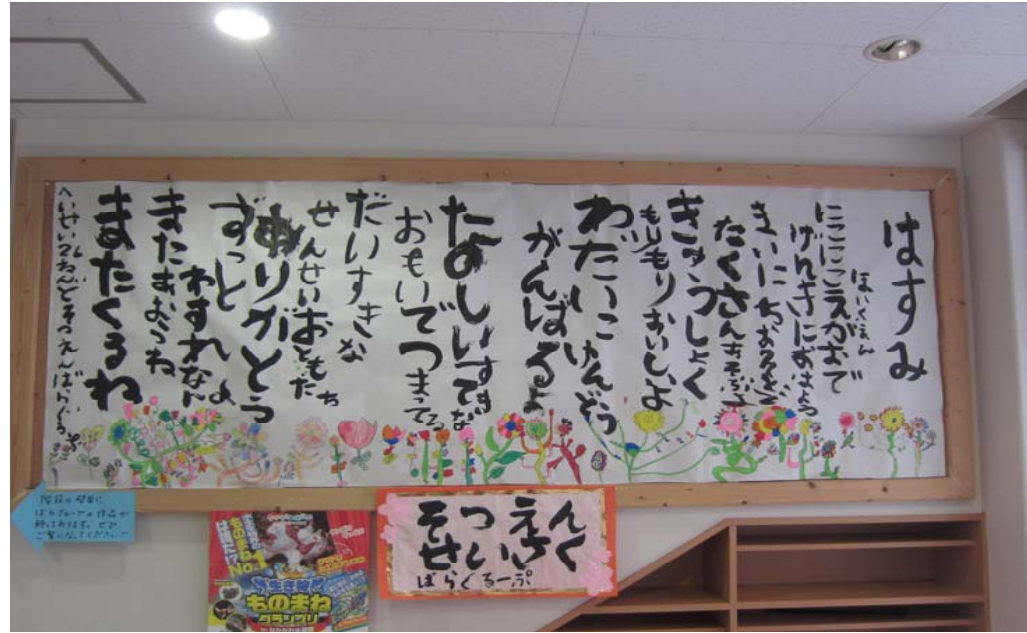 はすみ
ほいくえん
にこにこえがおで
げんきにおはよう
まいにちおえかき
たくさんあそぶよ
きゅうしょく
もりもりおいしいよ
わだいこ けんどう
がんばるよ
たのしいすてきな
おもいでつまってる
だいすきな
せんせいおともだち
ありがとう
ずっと
わすれないよ
またあおうね
またくるね
へいせい26ねんどそつえんばらぐるーぷ
そつえん
せいさく
ばらぐるーぷ
階段の壁面に
ばらグループの作品が
飾ってあります。ぜひ
ご覧になってください
ものまね
No.1
生き物
ものまね
グランプリ